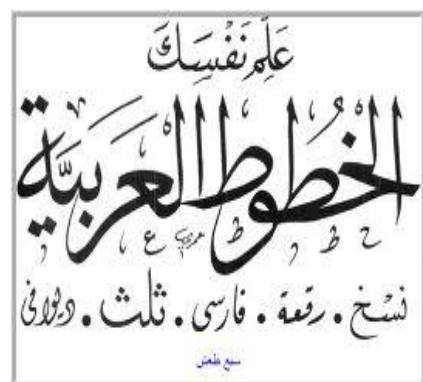 عَلِّم نَفْسِكَ
الخُطُوطَ العَرَبِيَّة
نسْخ . رقعة . فارسى . ثلث . ديوانى